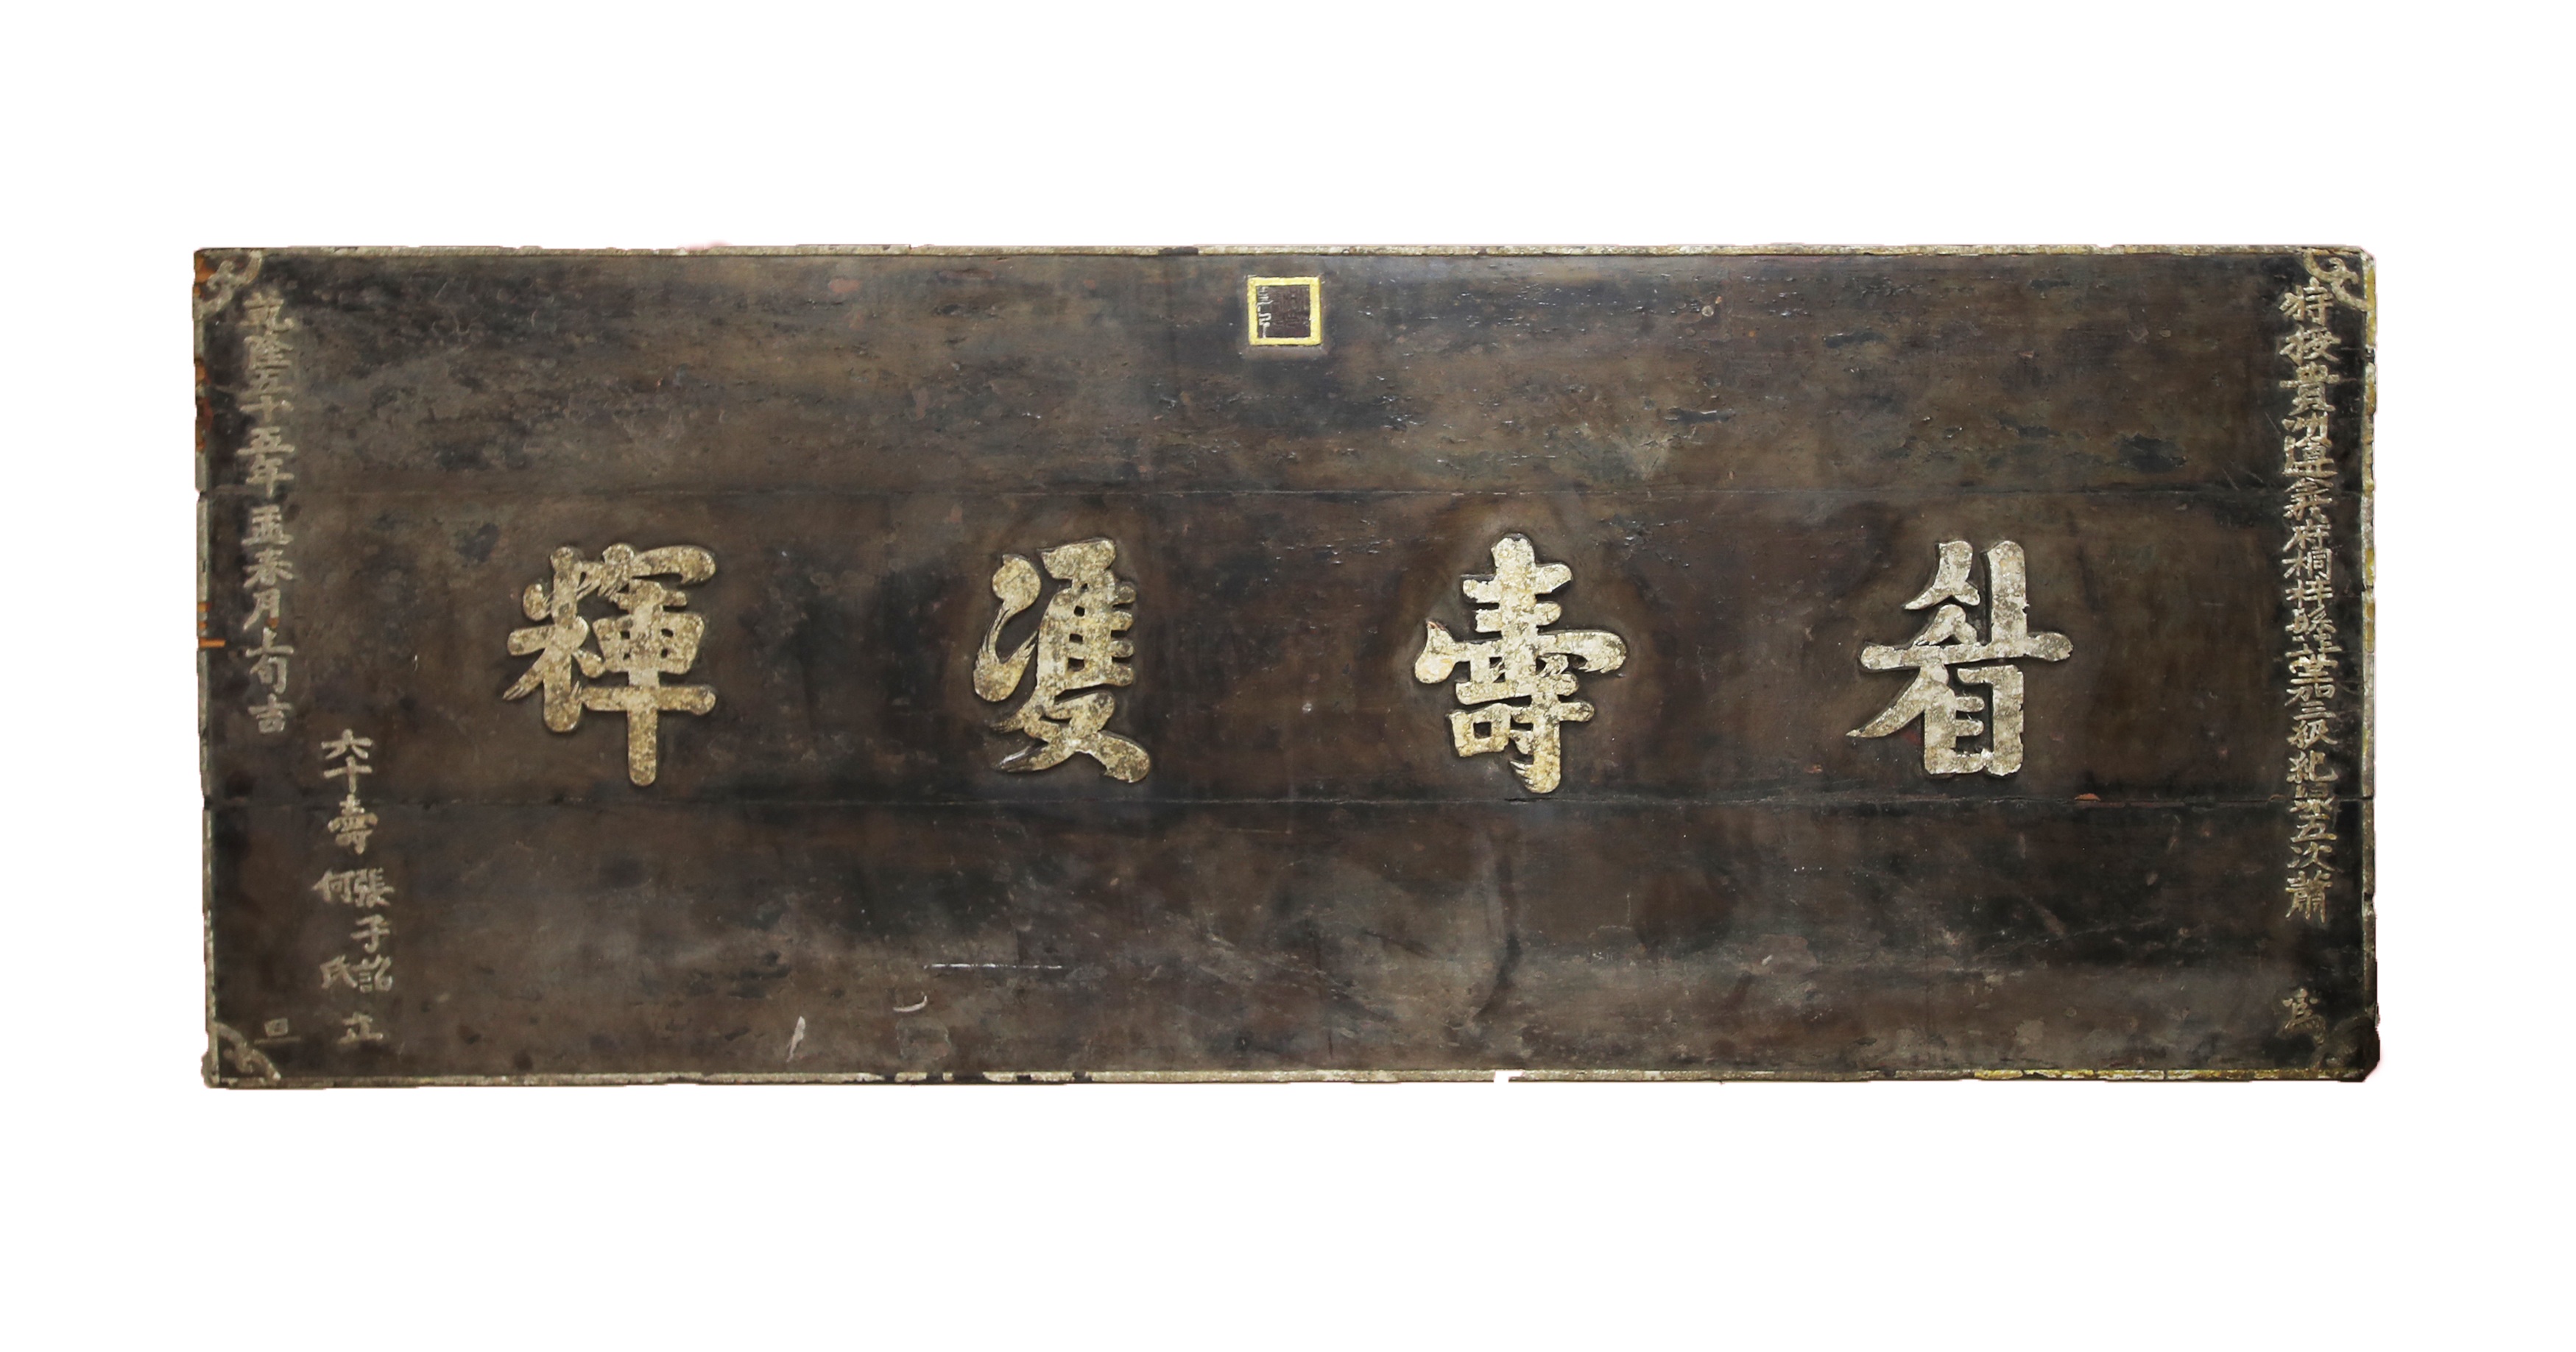 特授貴州遵義府桐梓縣正堂加三級紀錄五次蕭 為
眉壽雙輝
六十壽 張子韶 何氏 立
乾隆五十五年孟春月上旬吉日